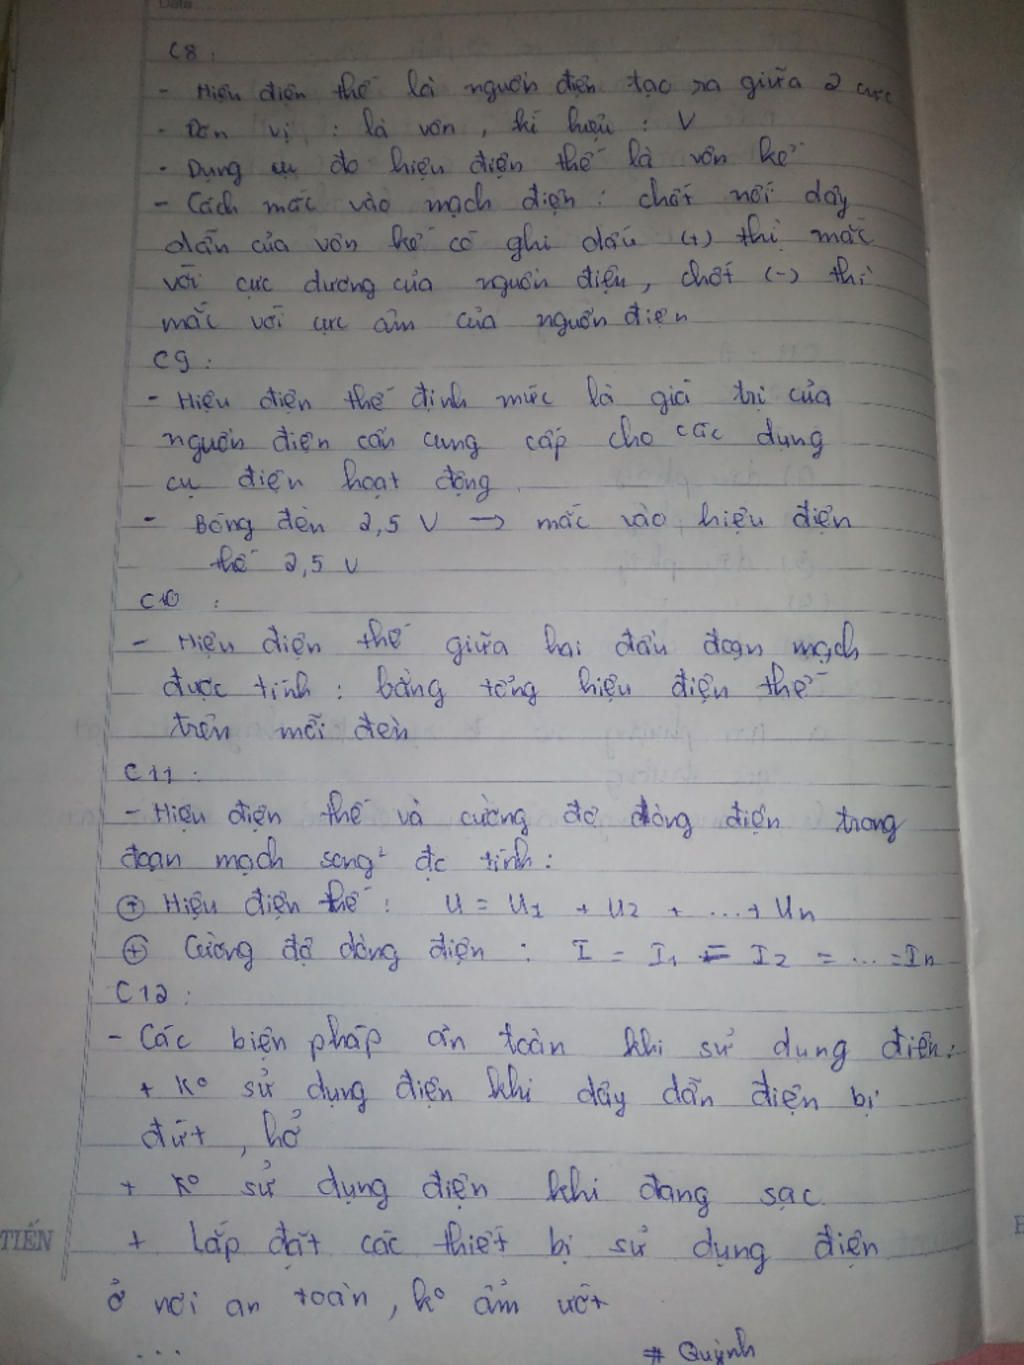 Date
C8 :
- Hiệu điện thế là nguồn điện tạo ra giữa 2 cực
- Đơn vị : là vôn , kí hiệu : V
- Dụng cụ đo hiệu điện thế là vôn kế
- Cách mắc vào mạch điện : chốt nối dây
dẫn của vôn kế có ghi dấu (+) thì mắc
với cực dương của nguồn điện , chốt (-) thì
mắc với cực âm của nguồn điện
C9 :
- Hiệu điện thế định mức là giá trị của
nguồn điện cần cung cấp cho các dụng
cụ điện hoạt động .
- Bóng đèn 2,5 V → mắc vào hiệu điện
thế 2,5 V
C10 :
- Hiệu điện thế giữa hai đầu đoạn mạch
được tính : bằng tổng hiệu điện thế
trên mỗi đèn
C11 :
- Hiệu điện thế và cường độ dòng điện trong
đoạn mạch song² đc tính :
⊕ Hiệu điện thế : U = U1 + U2 + ... + Un
⊕ Cường độ dòng điện : I = I1 = I2 = ... = In
C12 :
- Các biện pháp an toàn khi sử dụng điện :
+ K° sử dụng điện khi dây dẫn điện bị
đứt , hở
+ K° sử dụng điện khi đang sạc
TIẾN
+ Lắp đặt các thiết bị sử dụng điện
ở nơi an toàn , k° ẩm ướt
...
# Quỳnh